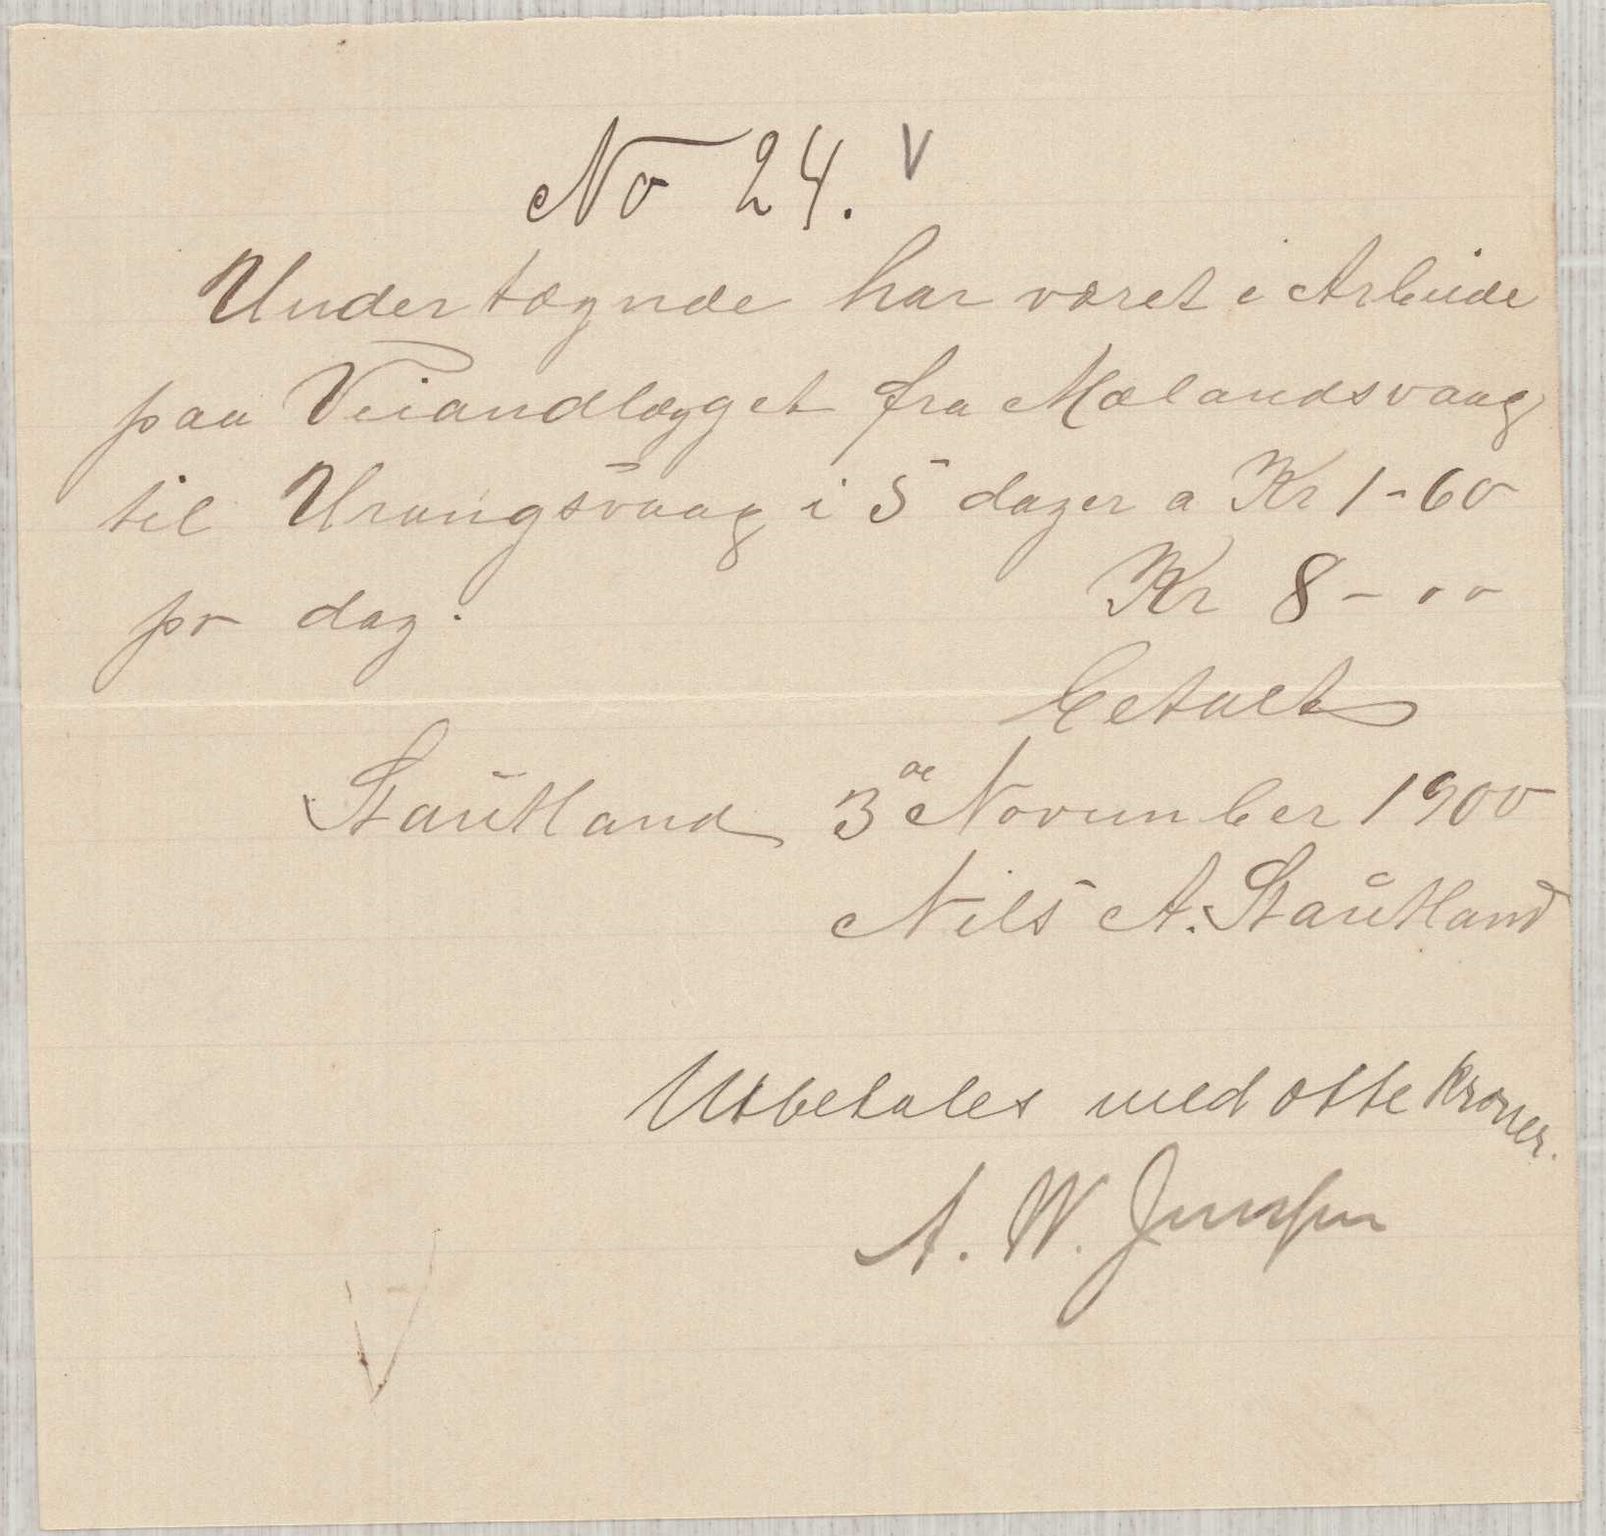 No 24. V
Undertægnde har været i Arbeide
paa Veiandlægget fra Mælandsvaag
til Urangsvaag i 5 dager a Kr 1-60
pr dag.
Kr 8-00
betalt
Stautland 3de November 1900
Nils A. Stautland
Utbetales med otte kroner.
A. W. Jensen